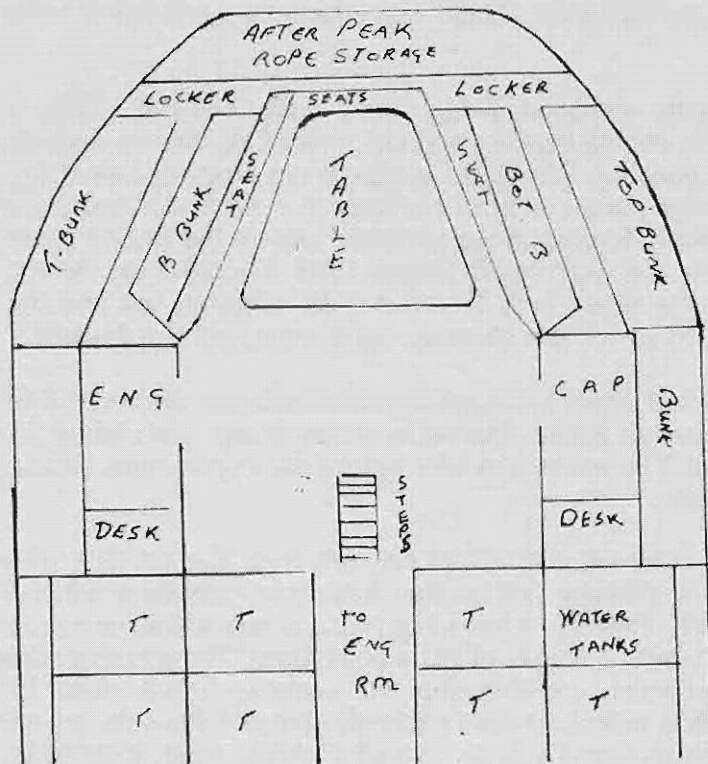 AFTER PEAK
ROPE STORAGE
LOCKER
SEATS
LOCKER
T. BUNK
B BUNK
SEAT
TABLE
SEAT
BOT B
TOP BUNK
ENG
CAP
BUNK
STEPS
DESK
DESK
T
T
TO
ENG
RM
T
WATER
TANKS
T
T
T
T